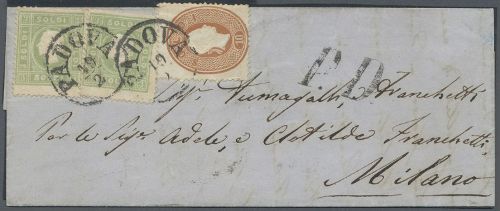 SOLDI SOLDI
PADOVA 19 2 PADOVA 19
10
P.D.
Sigr Fumagalli, Franchetti
Per le Sigre Adele, e Clotilde Franchetti
Milano